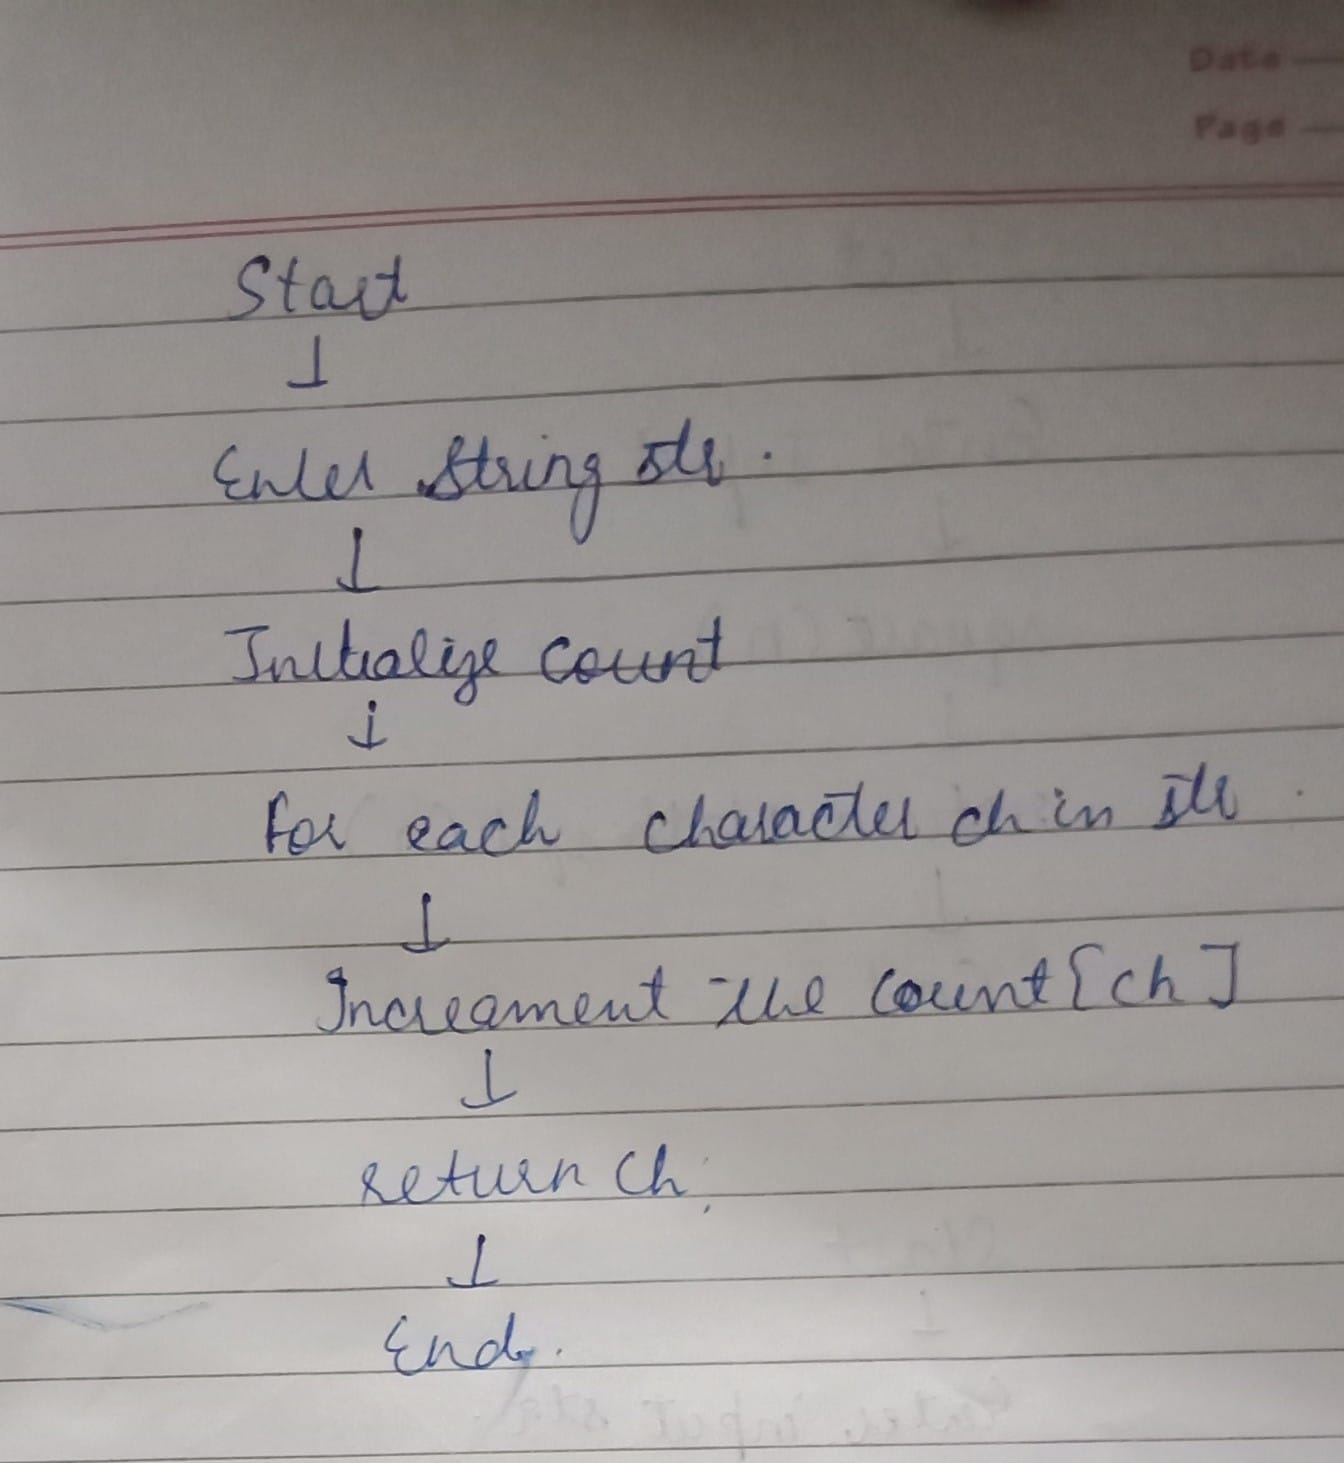 Date
Page
Start
↓
Enter String str.
↓
Initialize count
↓
for each character ch in str.
↓
Increament the count[ch]
↓
return ch;
↓
End.